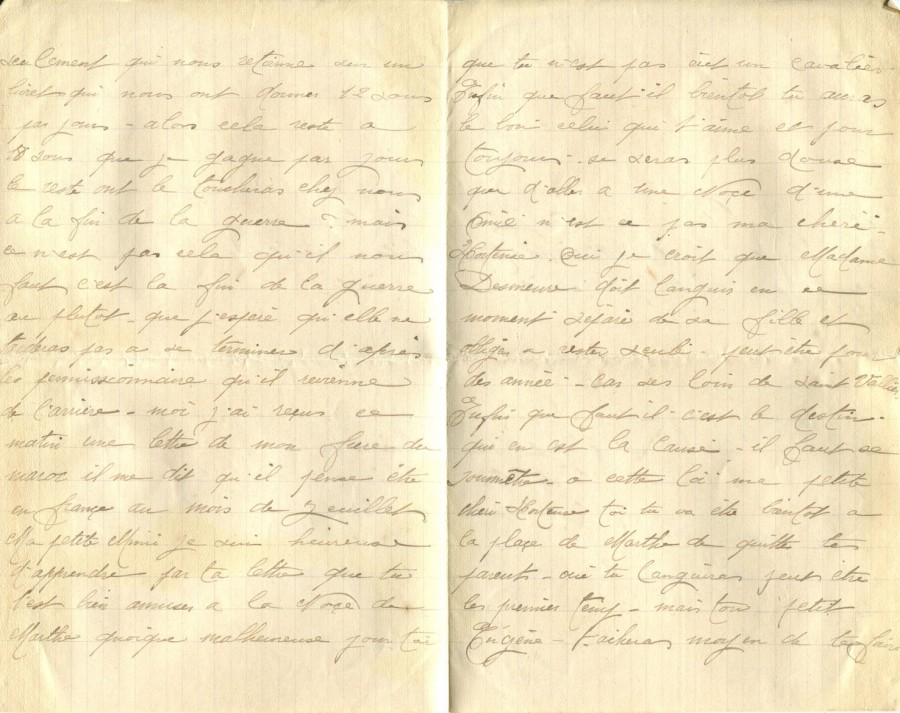 seulement qui nous retienne sur un
livret qui nous ont donner 12 sous
par jours - alors cela reste a
18 sous que je gagne par jours
le reste ont le toucheras chez nous
a la fin de la guerre ? mais
ce n'est pas cela qu'il nous
faut c'est la fin de la guerre
au plutot - que j'espère qui elle ne
tarderas pas a se terminer d'après
les permissionnaire qu'il revienne
de l'arrière - moi j'ai reçus ce
matin une lettre de mon frère du
maroc il me dit qu'il pense être
en france au mois de Juillet
Ma petite Mimi je suis heureuse
d'apprendre par ta lettre que tu
t'est bien amuser a la Noçe de
Marthe quoique malheureuse pour toi
que tu n'est pas eut un cavalier
Enfin que faut'il bientot tu auras
le bon celui qui t'aime et pour
toujours - se seras plus douse
que d'aller a une Noçe d'une
Amie n'est ce pas ma cherie
Hortense. Oui je croit que Madame
Desmeure doit languir en ce
moment séparé de sa fille et
obliger a rester seule - peut être pour
des année - car ses loin de saint Vallier
Enfin que faut il c'est le destin
qui en est la cause - il faut se
soumêtre - a cette loi ma petite
cheri Hortense toi tu va être bientot a
la plaçe de Marthe de quitter tes
parents - où tu languiras peut être
les premier temp - mais ton petit
Eugène - tacheras moyen de te faire